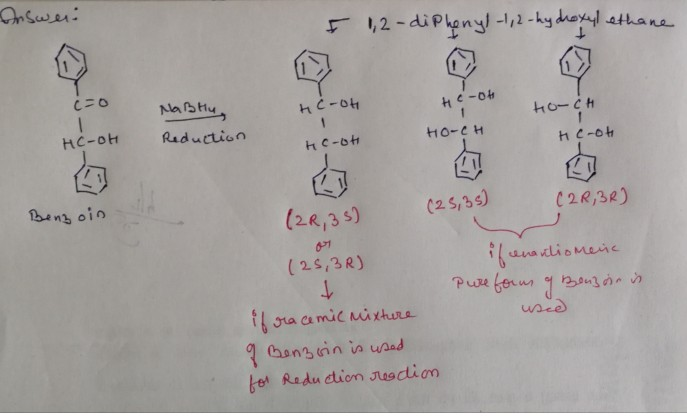 Answer:
1,2-diphenyl-1,2-hydroxyl ethane
C=O
HC-OH
Benzoin
NaBH4
Reduction
HC-OH
HC-OH
HC-OH
HO-CH
HO-CH
HC-OH
(2R,3S)
or
(2S,3R)
(2S,3S)
(2R,3R)
if racemic mixture
of Benzoin is used
for Reduction reaction
if enantiomeric
pure form of Benzoin is
used